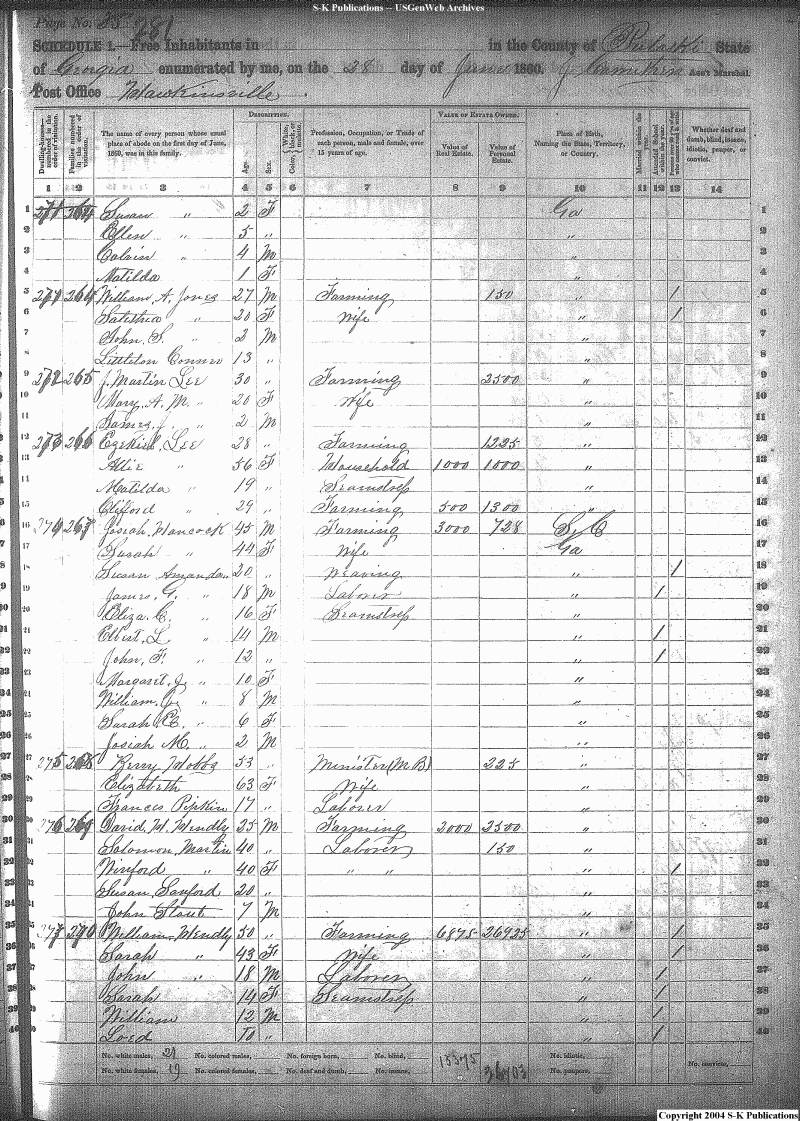 S-K Publications -- USGenWeb Archives
Page No. 35 281
SCHEDULE 1.—Free Inhabitants in in the County of Pulaski State
of Georgia enumerated by me, on the 28 day of June 1860. Ass't Marshal.
Post Office Hawkinsville
Dwelling-houses— numbered in the order of visitation.
Families numbered in the order of visitation.
The name of every person whose usual place of abode on the first day of June, 1860, was in this family.
DESCRIPTION.
Age.
Sex.
Color, White, black, or mulatto.
Profession, Occupation, or Trade of each person, male and female, over 15 years of age.
VALUE OF ESTATE OWNED.
Value of Real Estate.
Value of Personal Estate.
Place of Birth, Naming the State, Territory, or Country.
Married within the year.
Attended School within the year.
Whether deaf and dumb, blind, insane, idiotic, pauper, or convict.
1 2 3 4 5 6 7 8 9 10 11 12 13 14
1 271 264 Susan " 2 F Ga 1
2 Ellen " 5 " " 2
3 Calvin " 4 M " 3
4 Matilda 1 F " 4
5 271 264 William A. Jones 27 M Farming 150 " / 5
6 " 20 F Wife " / 6
7 John S. " 2 M " 7
8 Littleton Conner 13 " " 8
9 272 265 J. Martin Lee 30 " Farming 2500 " 9
10 Mary A. M. " 20 F Wife " 10
11 James J. " 2 M " 11
12 273 266 Ezekiel Lee 28 " Farming 1225 " 12
13 Allie " 56 F Household 1000 1000 " 13
14 Matilda " 19 " Seamstress " 14
15 Clifford " 29 " Farming 500 1300 " 15
16 274 267 Josiah Hancock 45 M Farming 3000 728 S. C 16
17 Sarah " 44 F Wife Ga 17
18 Susan Amandan 20 " Weaving " / 18
19 James G. " 18 M Laborer " / 19
20 Eliza C. " 16 F Seamstress " 20
21 Elbert L " 14 M " / 21
22 John F. " 12 " " / 22
23 Margaret J. " 10 F " 23
24 William G. " 8 M " 24
25 Sarah E. " 6 F " 25
26 Josiah M. " 2 M " 26
27 275 268 Berry Hobbs 53 " Minister (M B) 225 " 27
28 Elizabeth 63 F Wife " 28
29 Frances Pipkin 17 " Laborer " 29
30 276 269 David M. Wendly 25 M Farming 2000 2500 " 30
31 Solomon Martin 40 " Laborer 150 " 31
32 Winford " 40 F " " " / 32
33 Susan Sanford 20 " " 33
34 John Stout 7 M " 34
35 277 270 William Wendly 50 " Farming 6875 26925 " / 35
36 Sarah " 43 F Wife " / 36
37 John " 18 M Laborer " / 37
38 Sarah 14 F Seamstress " / 38
39 William 12 M " / 39
40 Loed 10 " " / 40
No. white males, 21 No. colored males, No. foreign born, No. blind, 15375 No. idiotic,
No. white females, 19 No. colored females, No. deaf and dumb, No. insane, No. paupers, No. convicts,
Copyright 2004 S-K Publications